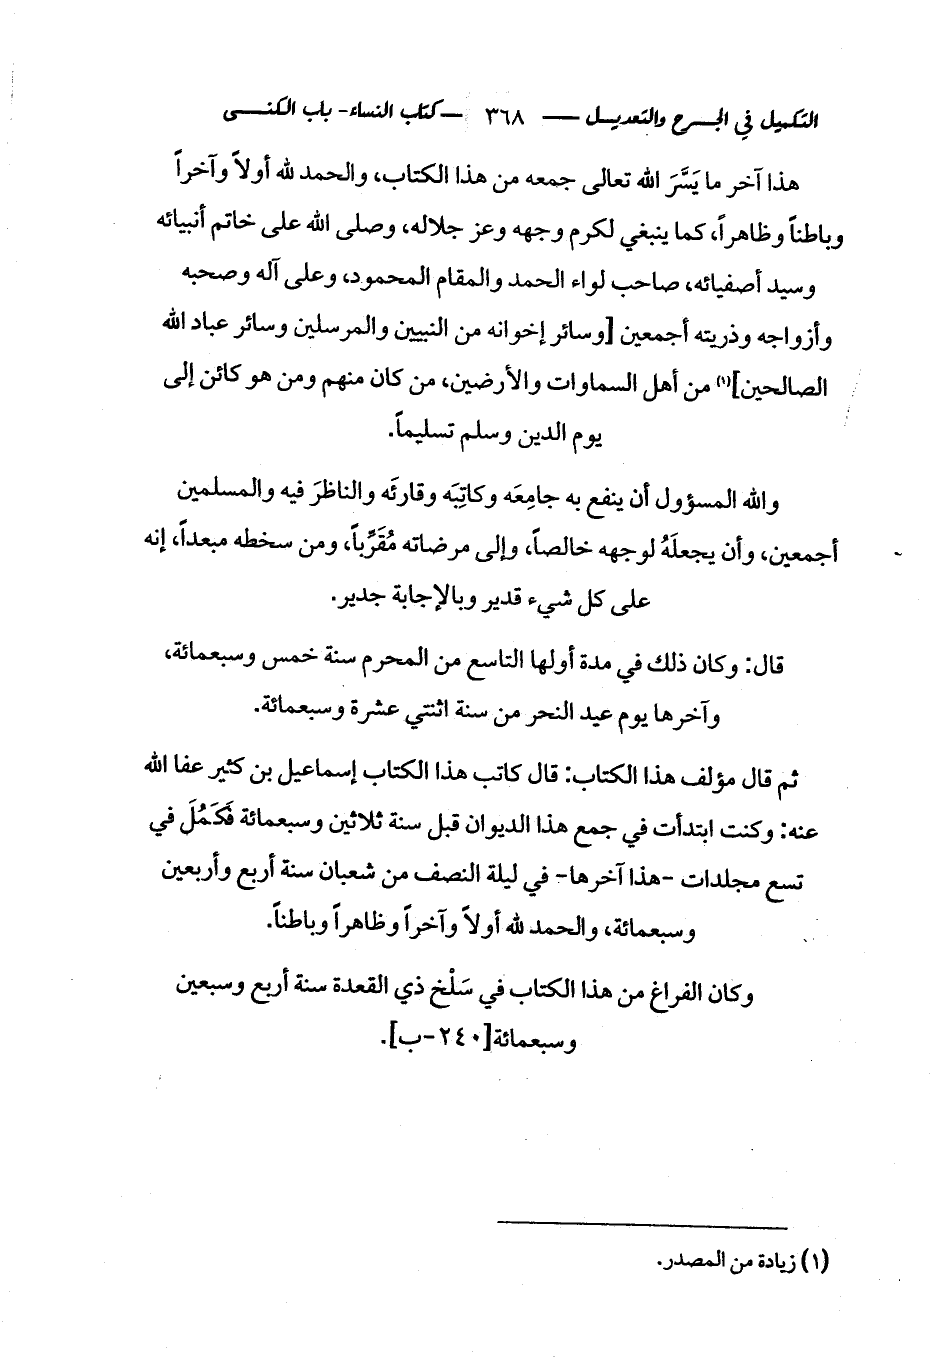 التكميل في الجرح والتعديل — ٣٦٨ — كتاب النساء- باب الكنى
هذا آخر ما يَسَّرَ الله تعالى جمعه من هذا الكتاب، والحمد لله أولاً وآخراً
وباطناً وظاهراً، كما ينبغي لكرم وجهه وعز جلاله، وصلى الله على خاتم أنبيائه
وسيد أصفيائه، صاحب لواء الحمد والمقام المحمود، وعلى آله وصحبه
وأزواجه وذريته أجمعين [وسائر إخوانه من النبيين والمرسلين وسائر عباد الله
الصالحين](١) من أهل السماوات والأرضين، من كان منهم ومن هو كائن إلى
يوم الدين وسلم تسليماً.
والله المسؤول أن ينفع به جامِعَه وكاتِبَه وقارئَه والناظرَ فيه والمسلمين
أجمعين، وأن يجعلَهُ لوجهه خالصاً، وإلى مرضاته مُقَرِّباً، ومن سخطه مبعداً، إنه
على كل شيء قدير وبالإجابة جدير.
قال: وكان ذلك في مدة أولها التاسع من المحرم سنة خمس وسبعمائة،
وآخرها يوم عيد النحر من سنة اثنتي عشرة وسبعمائة.
ثم قال مؤلف هذا الكتاب: قال كاتب هذا الكتاب إسماعيل بن كثير عفا الله
عنه: وكنت ابتدأت في جمع هذا الديوان قبل سنة ثلاثين وسبعمائة فَكَمُلَ في
تسع مجلدات -هذا آخرها- في ليلة النصف من شعبان سنة أربع وأربعين
وسبعمائة، والحمد لله أولاً وآخراً وظاهراً وباطناً.
وكان الفراغ من هذا الكتاب في سَلْخ ذي القعدة سنة أربع وسبعين
وسبعمائة[٢٤٠-ب].
(١) زيادة من المصدر.